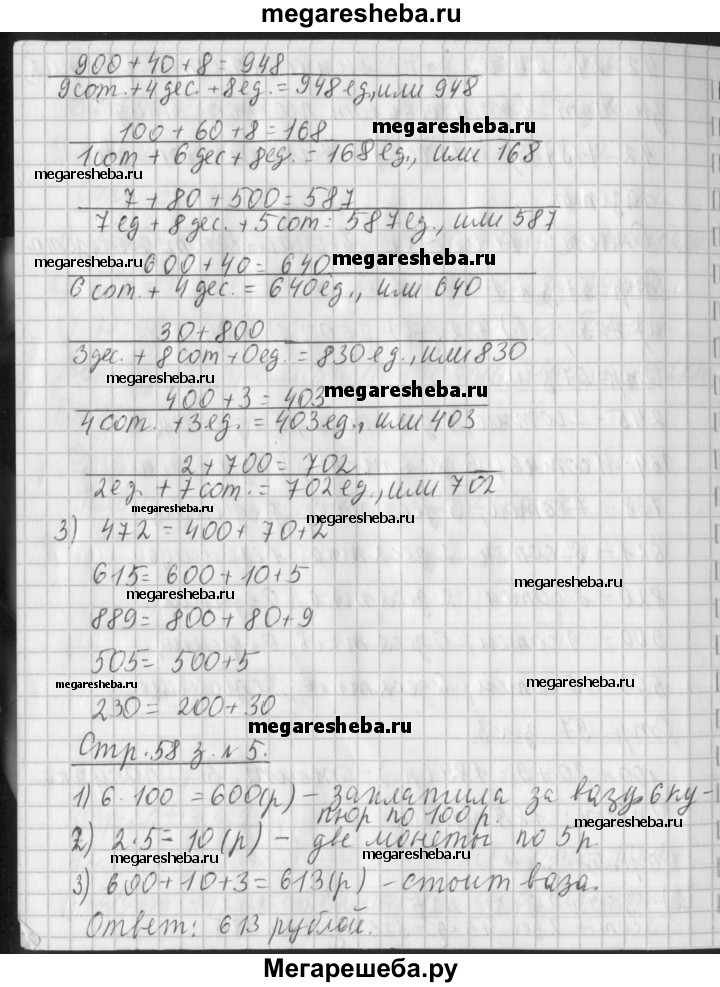 megaresheba.ru
900+40+8=948
9сот.+4дес.+8ед.=948ед,или 948
100+60+8=168
megaresheba.ru
1сот + 6дес+8ед.=168ед., или 168
megaresheba.ru
7+80+500=587
7ед+8дес.+5сот=587ед., или 587
megaresheba.ru
600+40=640
megaresheba.ru
6сот.+4дес.=640ед., или 640
30+800
3дес.+8сот+0ед.=830ед.,или 830
megaresheba.ru
400+3=403
megaresheba.ru
4сот.+3ед.=403ед., или 403
2+700=702
2ед.+7сот.=702ед., или 702
megaresheba.ru
megaresheba.ru
3) 472=400+70+2
615=600+10+5
megaresheba.ru
megaresheba.ru
889=800+80+9
505=500+5
megaresheba.ru
megaresheba.ru
230=200+30
megaresheba.ru
Стр.58 з.№5.
1) 6·100=600(р)-заплатила за вазу 6 ку-
пюр по 100р.
megaresheba.ru
2) 2·5=10(р) - две монеты по 5р
megaresheba.ru
megaresheba.ru
3) 600+10+3=613(р)-стоит ваза.
megaresheba.ru
Ответ: 613 рублой.
megaresheba.ru
Мегарешеба.ру